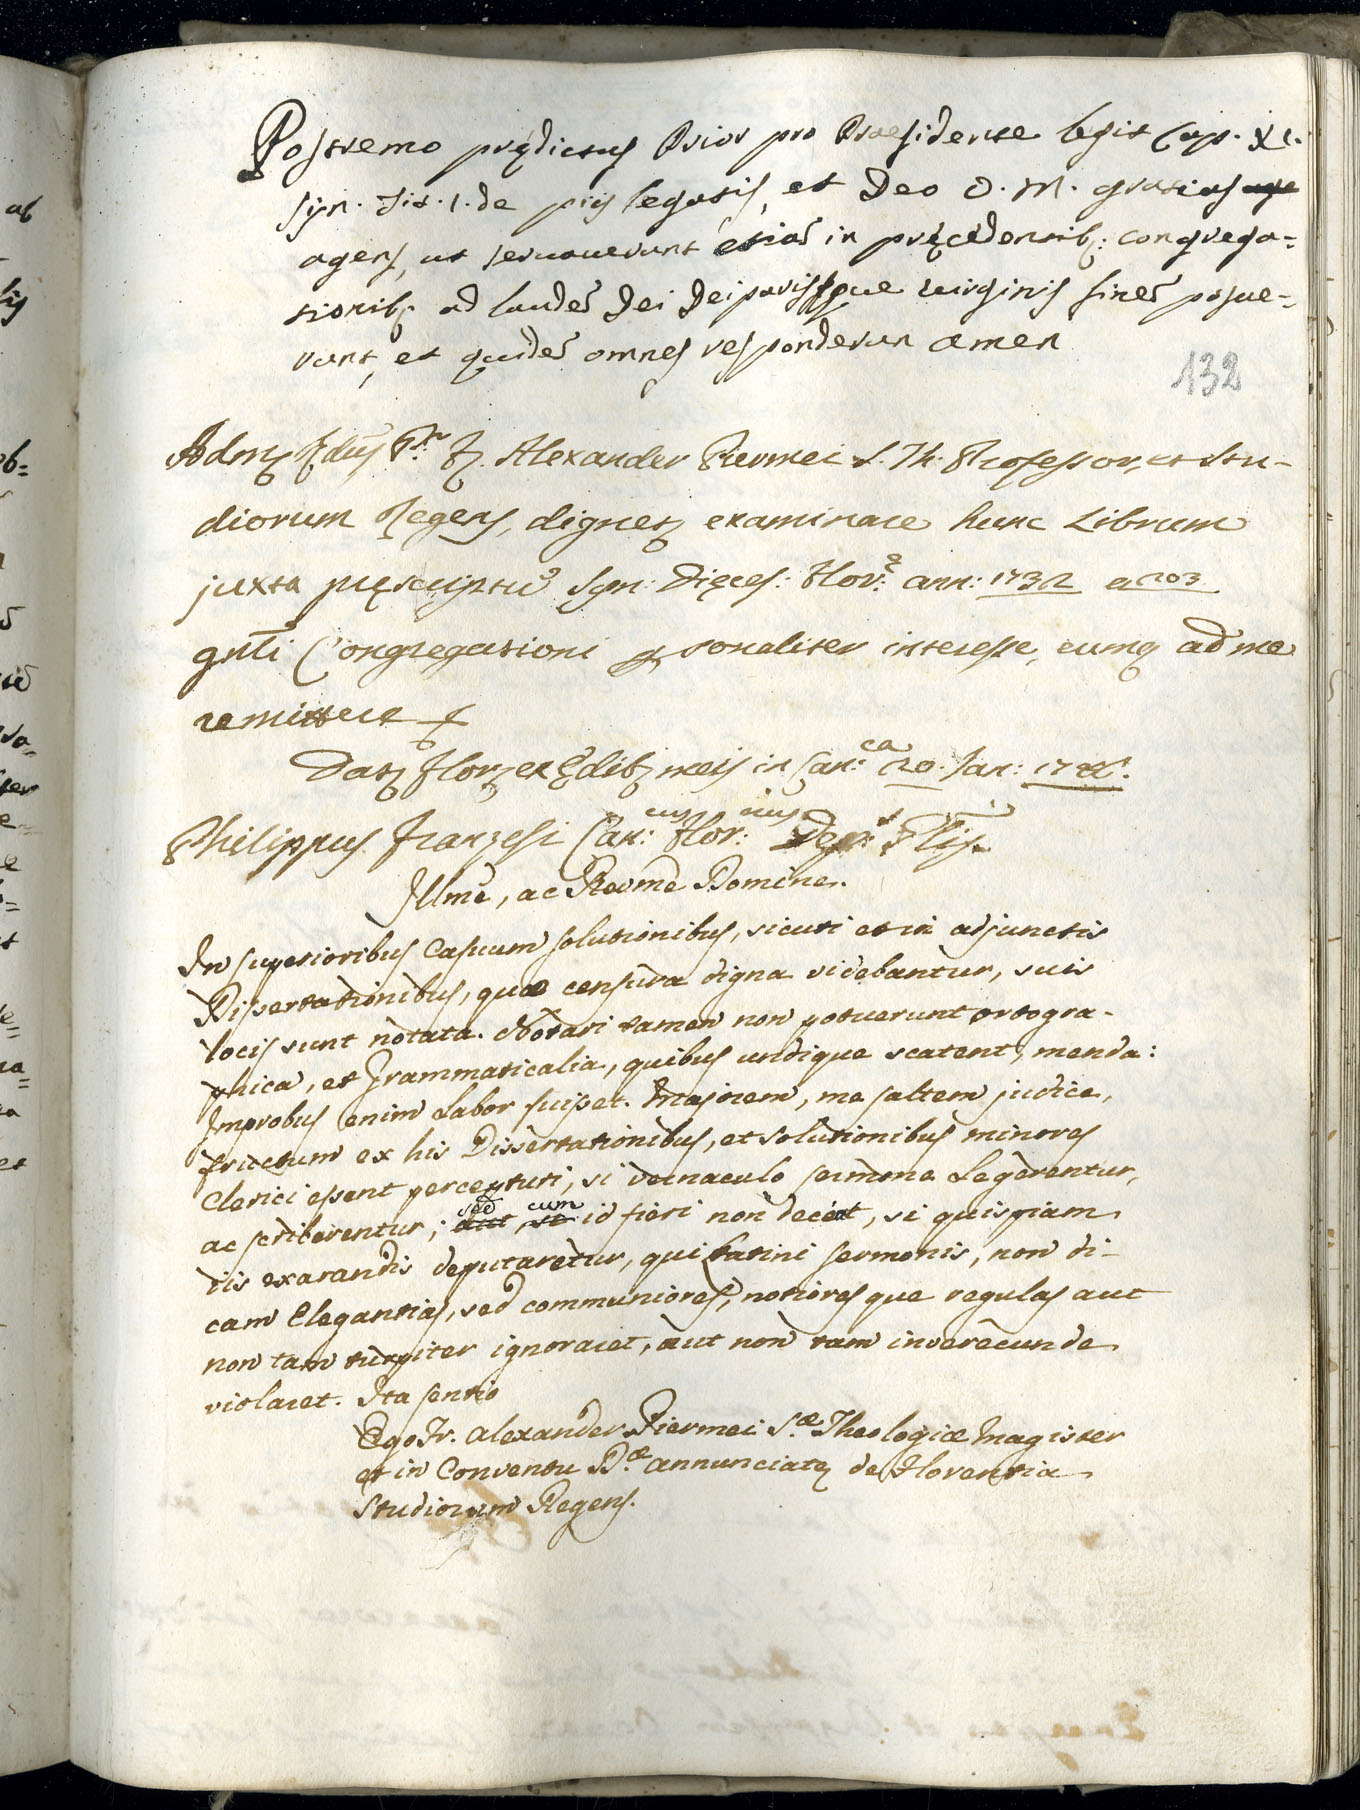 Postremo prędictus Prior pro Praesidente legit Cap. XI.
syn. tit. 1. de piis legatis, et Deo O. M. gratias age
agens, ut servaverunt etiā in pręcedentib: congrega=
tionib; ad laudē Dei Deiparisque virginis finē posue=
runt, et quidē omnes responderun amen
132
Adm Rdus Pr. F. Alexander Piermei S. Th. Professor, et Stu-
diorum Regens, dignet examinare hunc Librum
juxta pręscriptū Syn: Dięces: Flor:ę ann: 1732 a 203
gnti Congregationi personaliter interesse, eumq ad me
remittere
Dat Flor ex Ędib meis in Can:ca 20. Jan:
Philippus Franzesi Can:cus Flor:nus
Illmē, ac Revmē Domine.
In superioribus Casuum solutionibus, sicuti et in adjunctis
Dissertationibus, quae censura digna videbantur, suis
locis sunt notata. Notari tamen non potuerunt ortogra-
phica, et Grammaticalia, quibus undique scatent, menda:
Improbus enim Labor fuisset. Majorem, me saltem judice,
fructum ex his Dissertationibus, et solutionibus minores
Clerici essent percepturi, si vernaculo sermone Legerentur,
ac scriberentur; aut sed si cum id fieri non deceat, si quispiam
iis exarandis deputaretur, qui Latini sermonis, non di-
cam Elegantias, sed communiores, notioresque regulas aut
non tam turpiter ignoraret, aut non tam inverecunde
violaret. Ita sentio
Ego Fr. Alexander Piermei S.æ Theologiæ Magister
et in Conventu B.æ Annunciatę de Florentia
Studiorum Regens.